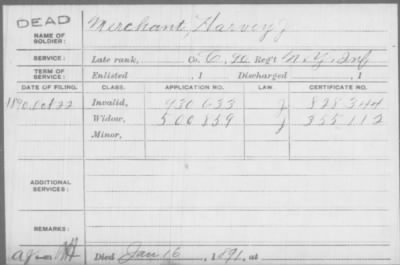 DEAD
NAME OF SOLDIER: Merchant, Harvey J
SERVICE: Late rank, Co. C, Reg't N.Y. Inf
TERM OF SERVICE: Enlisted , 1 Discharged , 1
DATE OF FILING. CLASS. APPLICATION NO. LAW. CERTIFICATE NO.
1890, Oct 22 Invalid, 930.633 J 828.344
Widow, 500.859 J 355.112
Minor,
ADDITIONAL SERVICES:
REMARKS:
Died Jan 16, 1891, at